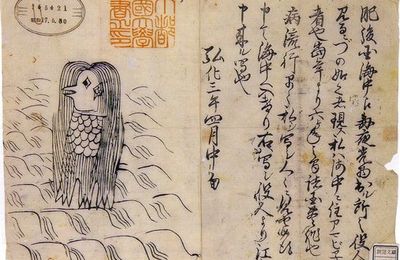 肥後国海中え毎夜光物出ル所之役人行
見るニづの如之者現ス私ハ海中ニ住アマビヱト申
者也當年より六ヶ年之間諸国豊作也併
病流行早々私ヲ写シ人々ニ見セ候得と
申て海中へ入けり右ハ写シ役人より江戸え
申来ル写也
弘化三年四月中旬
京都
帝國大學圖
書之印
新聞文庫